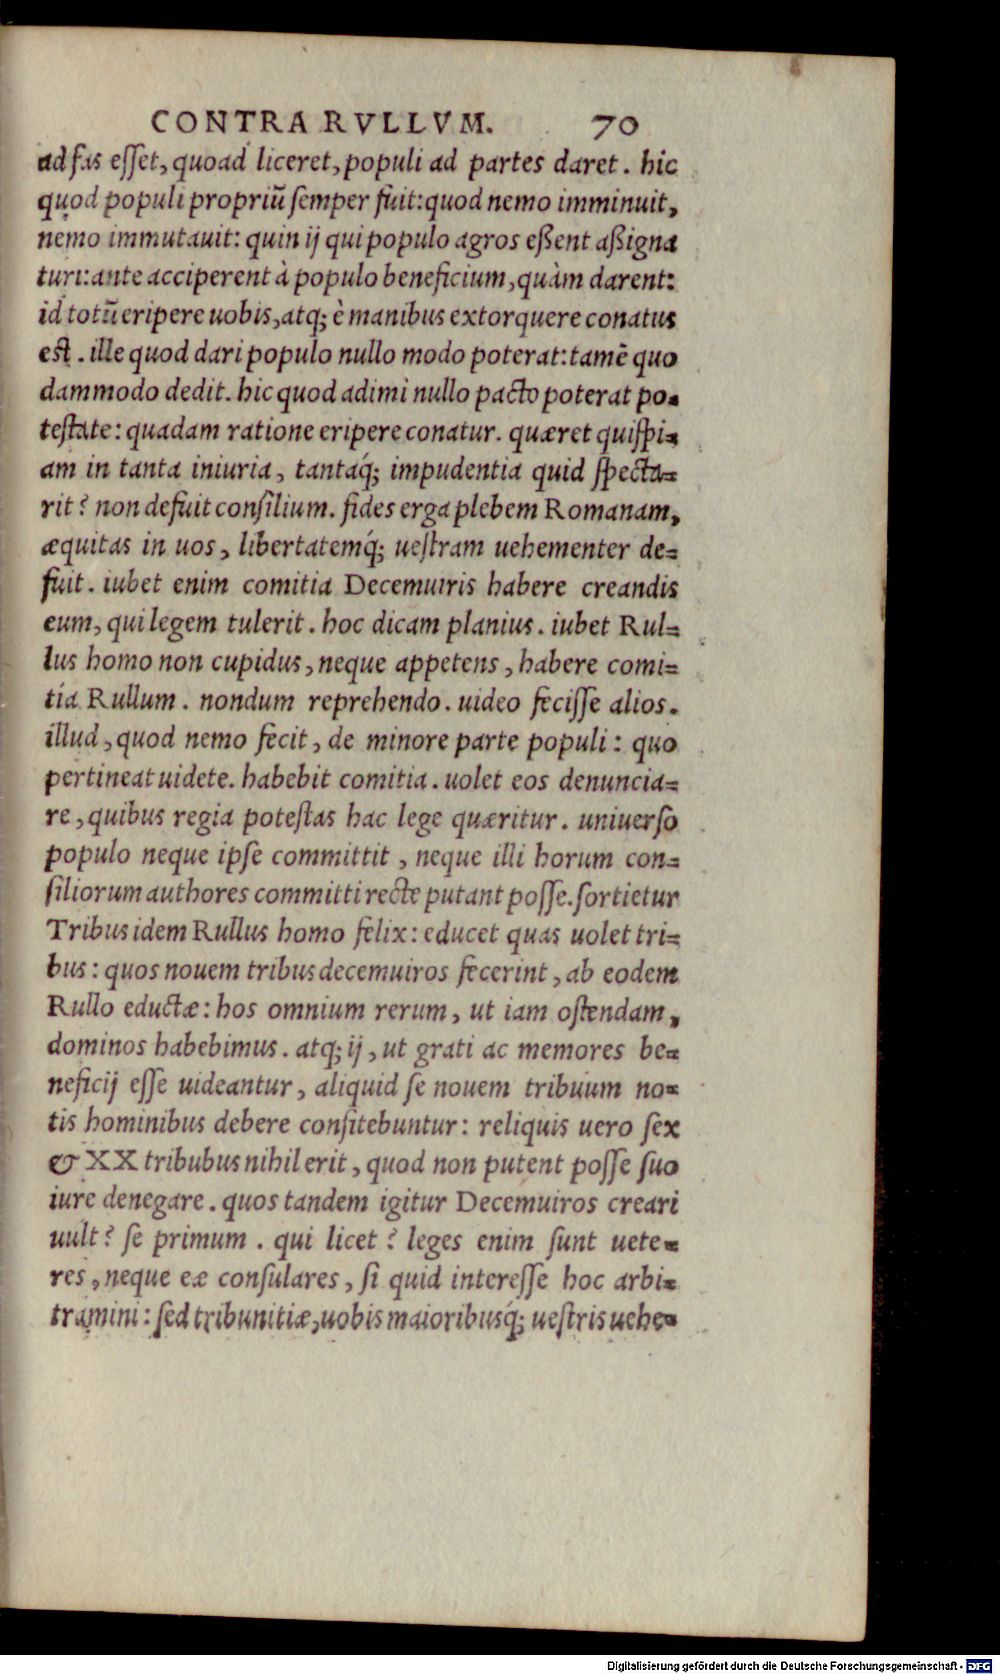 CONTRA RVLLVM. 70
ad fas eſſet, quoad liceret, populi ad partes daret. hic
quod populi propriū ſemper fuit: quod nemo imminuit,
nemo immutauit: quin ij qui populo agros eßent aßigna
turi: ante acciperent à populo beneficium, quàm darent:
id totū eripere uobis, atq; è manibus extorquere conatus
est. ille quod dari populo nullo modo poterat: tamē quo
dammodo dedit. hic quod adimi nullo pacto poterat po-
teſtate: quadam ratione eripere conatur. quæret quiſpi-
am in tanta iniuria, tantaq́; impudentia quid ſpecta-
rit? non defuit conſilium. fides erga plebem Romanam,
æquitas in uos, libertatemq́; ueſtram uehementer de-
fuit. iubet enim comitia Decemuiris habere creandis
eum, qui legem tulerit. hoc dicam planius. iubet Rul-
lus homo non cupidus, neque appetens, habere comi-
tia Rullum. nondum reprehendo. uideo feciſſe alios.
illud, quod nemo fecit, de minore parte populi: quo
pertineat uidete. habebit comitia. uolet eos denuncia-
re, quibus regia poteſtas hac lege quæritur. uniuerſo
populo neque ipſe committit, neque illi horum con-
ſiliorum authores committi recte putant poſſe. ſortietur
Tribus idem Rullus homo felix: educet quas uolet tri-
bus: quos nouem tribus decemuiros fecerint, ab eodem
Rullo eductæ: hos omnium rerum, ut iam oſtendam,
dominos habebimus. atq; ij, ut grati ac memores be-
neficij eſſe uideantur, aliquid ſe nouem tribuum no-
tis hominibus debere confitebuntur: reliquis uero ſex
& XX tribubus nihil erit, quod non putent poſſe ſuo
iure denegare. quos tandem igitur Decemuiros creari
uult? ſe primum. qui licet? leges enim ſunt uete-
res, neque eæ conſulares, ſi quid intereſſe hoc arbi-
tramini: ſed tribunitiæ, uobis maioribusq́; ueſtris uehe-
Digitalisierung gefördert durch die Deutsche Forschungsgemeinschaft - DFG